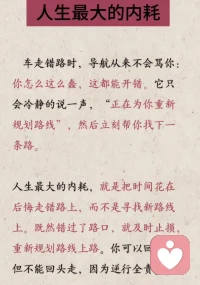 人生最大的内耗
车走错路时，导航从来不会骂你：
你怎么这么蠢，这都能开错。它只
会冷静的说一声，“正在为你重新
规划路线”，然后立刻帮你找下一
条路。
人生最大的内耗，就是把时间花在
后悔走错路上，而不是寻找新路线
上。既然错过了路口，就及时止损，
重新规划路线上路。你可以回
但不能回头走，因为逆行全责